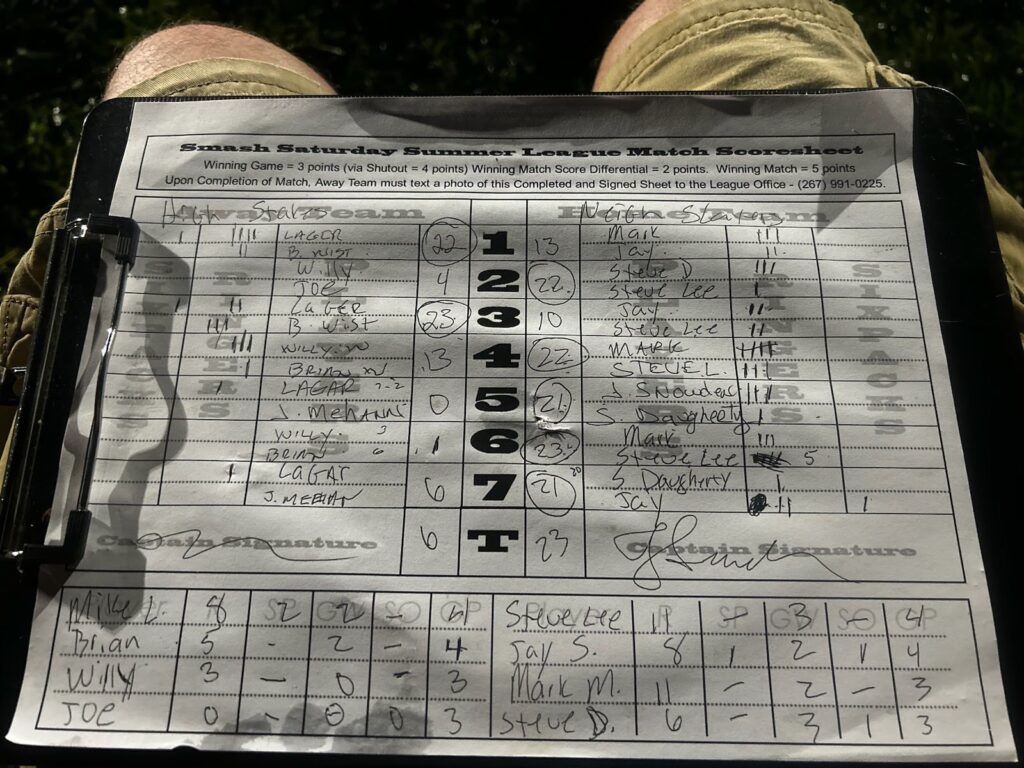 Smash Saturday Summer League Match Scoresheet
Winning Game = 3 points (via Shutout = 4 points) Winning Match Score Differential = 2 points. Winning Match = 5 points
Upon Completion of Match, Away Team must text a photo of this Completed and Signed Sheet to the League Office - (267) 991-0225.
High Stakes Away Team Home Team
LAGER 22 1 13 Mark
B. WIST Jay
Willy 4 2 22 Steve D
JOE Steve Lee
LAGER 23 3 10 Jay
B. WIST Steve Lee
WILLY W 13 4 22 MARK
BRIAN W STEVE L.
LAGAR 0 5 21 J. Snowden
S. Daugherty
WILLY 3 1 6 23 Mark
BRIAN 6 Steve Lee 5
LAGAR 6 7 21 20 S Daugherty
J. MEEHAN Jay
STRINGERS SIXPACKS
Captain Signature 6 T 23 Captain Signature
Mike L 8 SP 2 GW 2 SO - GP Steve Lee 11 SP - GW 3 SO - GP 4
Brian 5 - 2 - 4 Jay S. 8 1 2 1 4
Willy 3 - 0 - 3 Mark M. 11 - 2 - 3
JOE 0 - 0 0 3 Steve D. 6 - 3 1 3